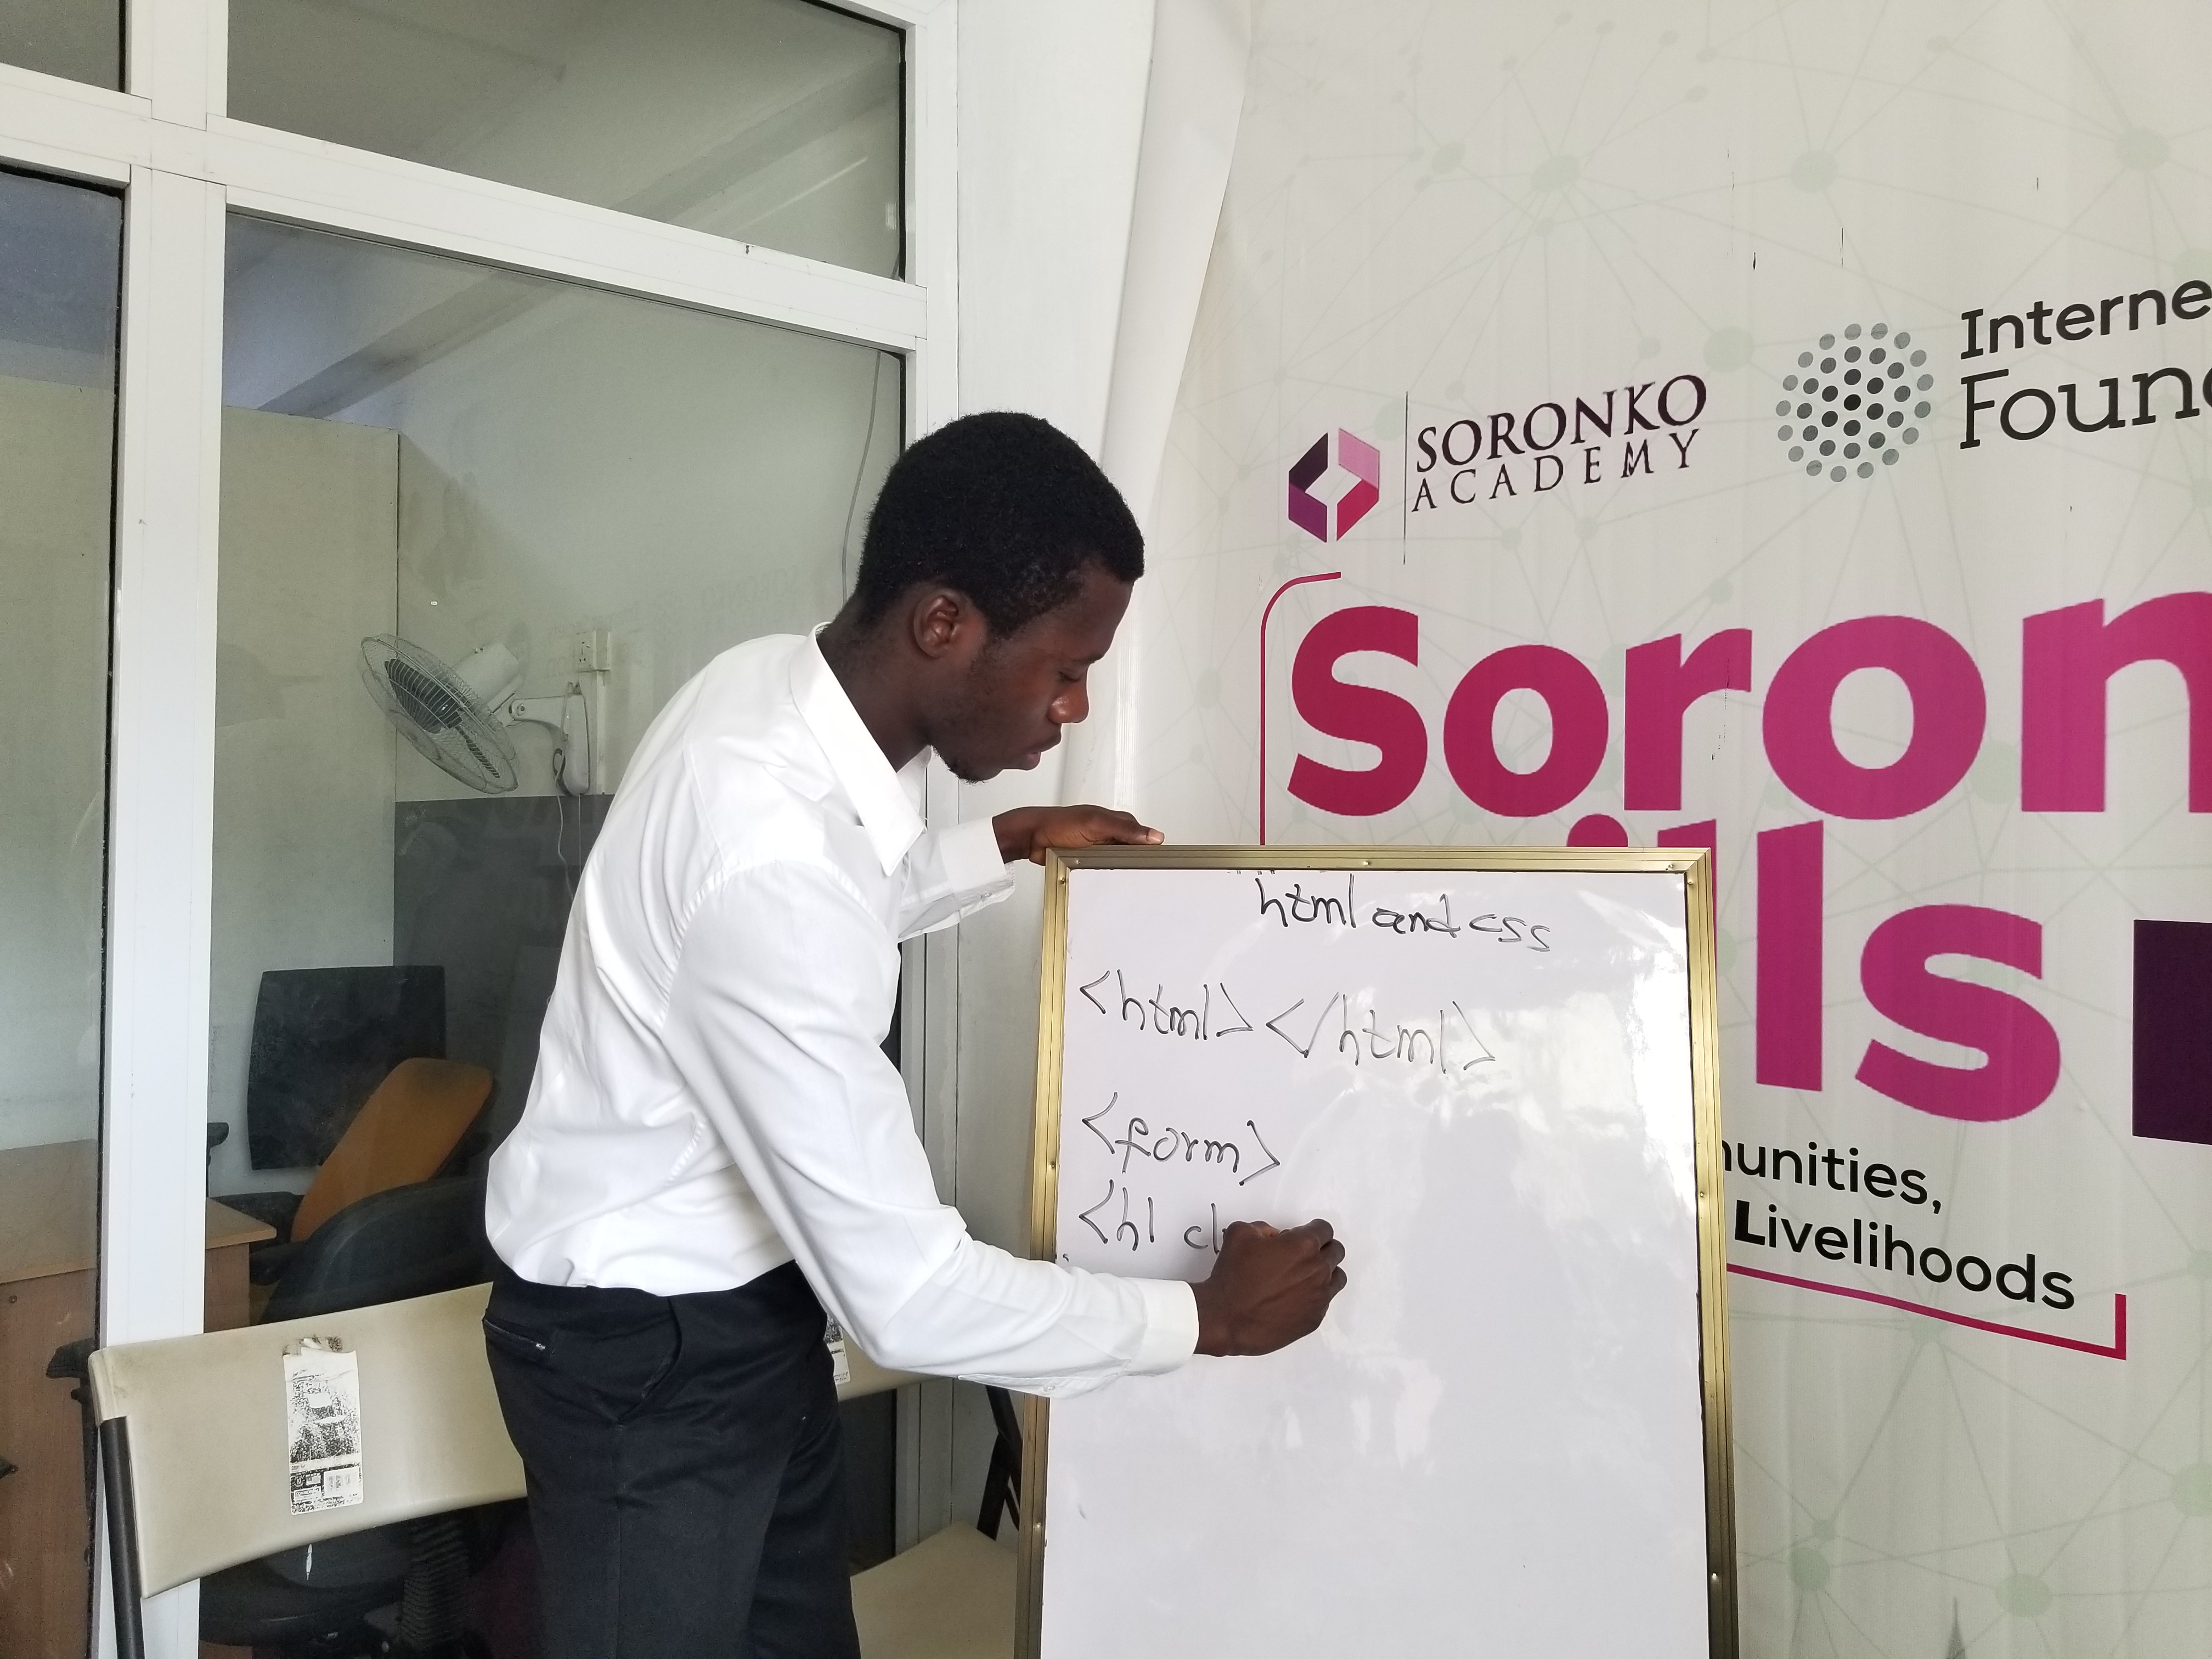 SORONKO
ACADEMY
Interne
Foun
Soron
ills
unities,
Livelihoods
html and css
<html></html>
<form>
<h1 cl